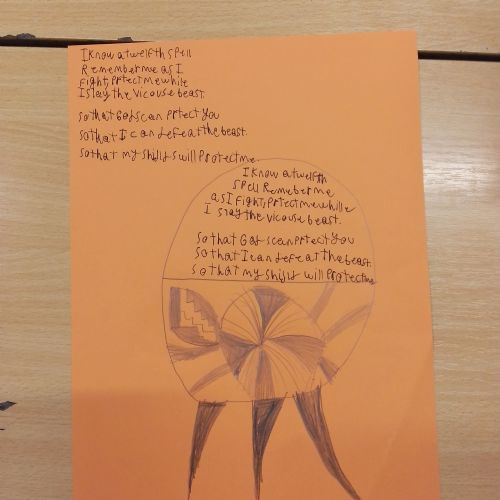 I know a twelfth spell
Remember me as I
fight, prtect me while
I slay the vicouse beast.
so that Gods can prtect you
so that I can defeat the beast.
so that my shilds will protect me.
I know a twelfth
spell Remeber me
as I fight, prtect me whille
I slay the vicouse beast.
so that Gods can prtect you
so that I can defeat the beast.
so that my shild will protect me